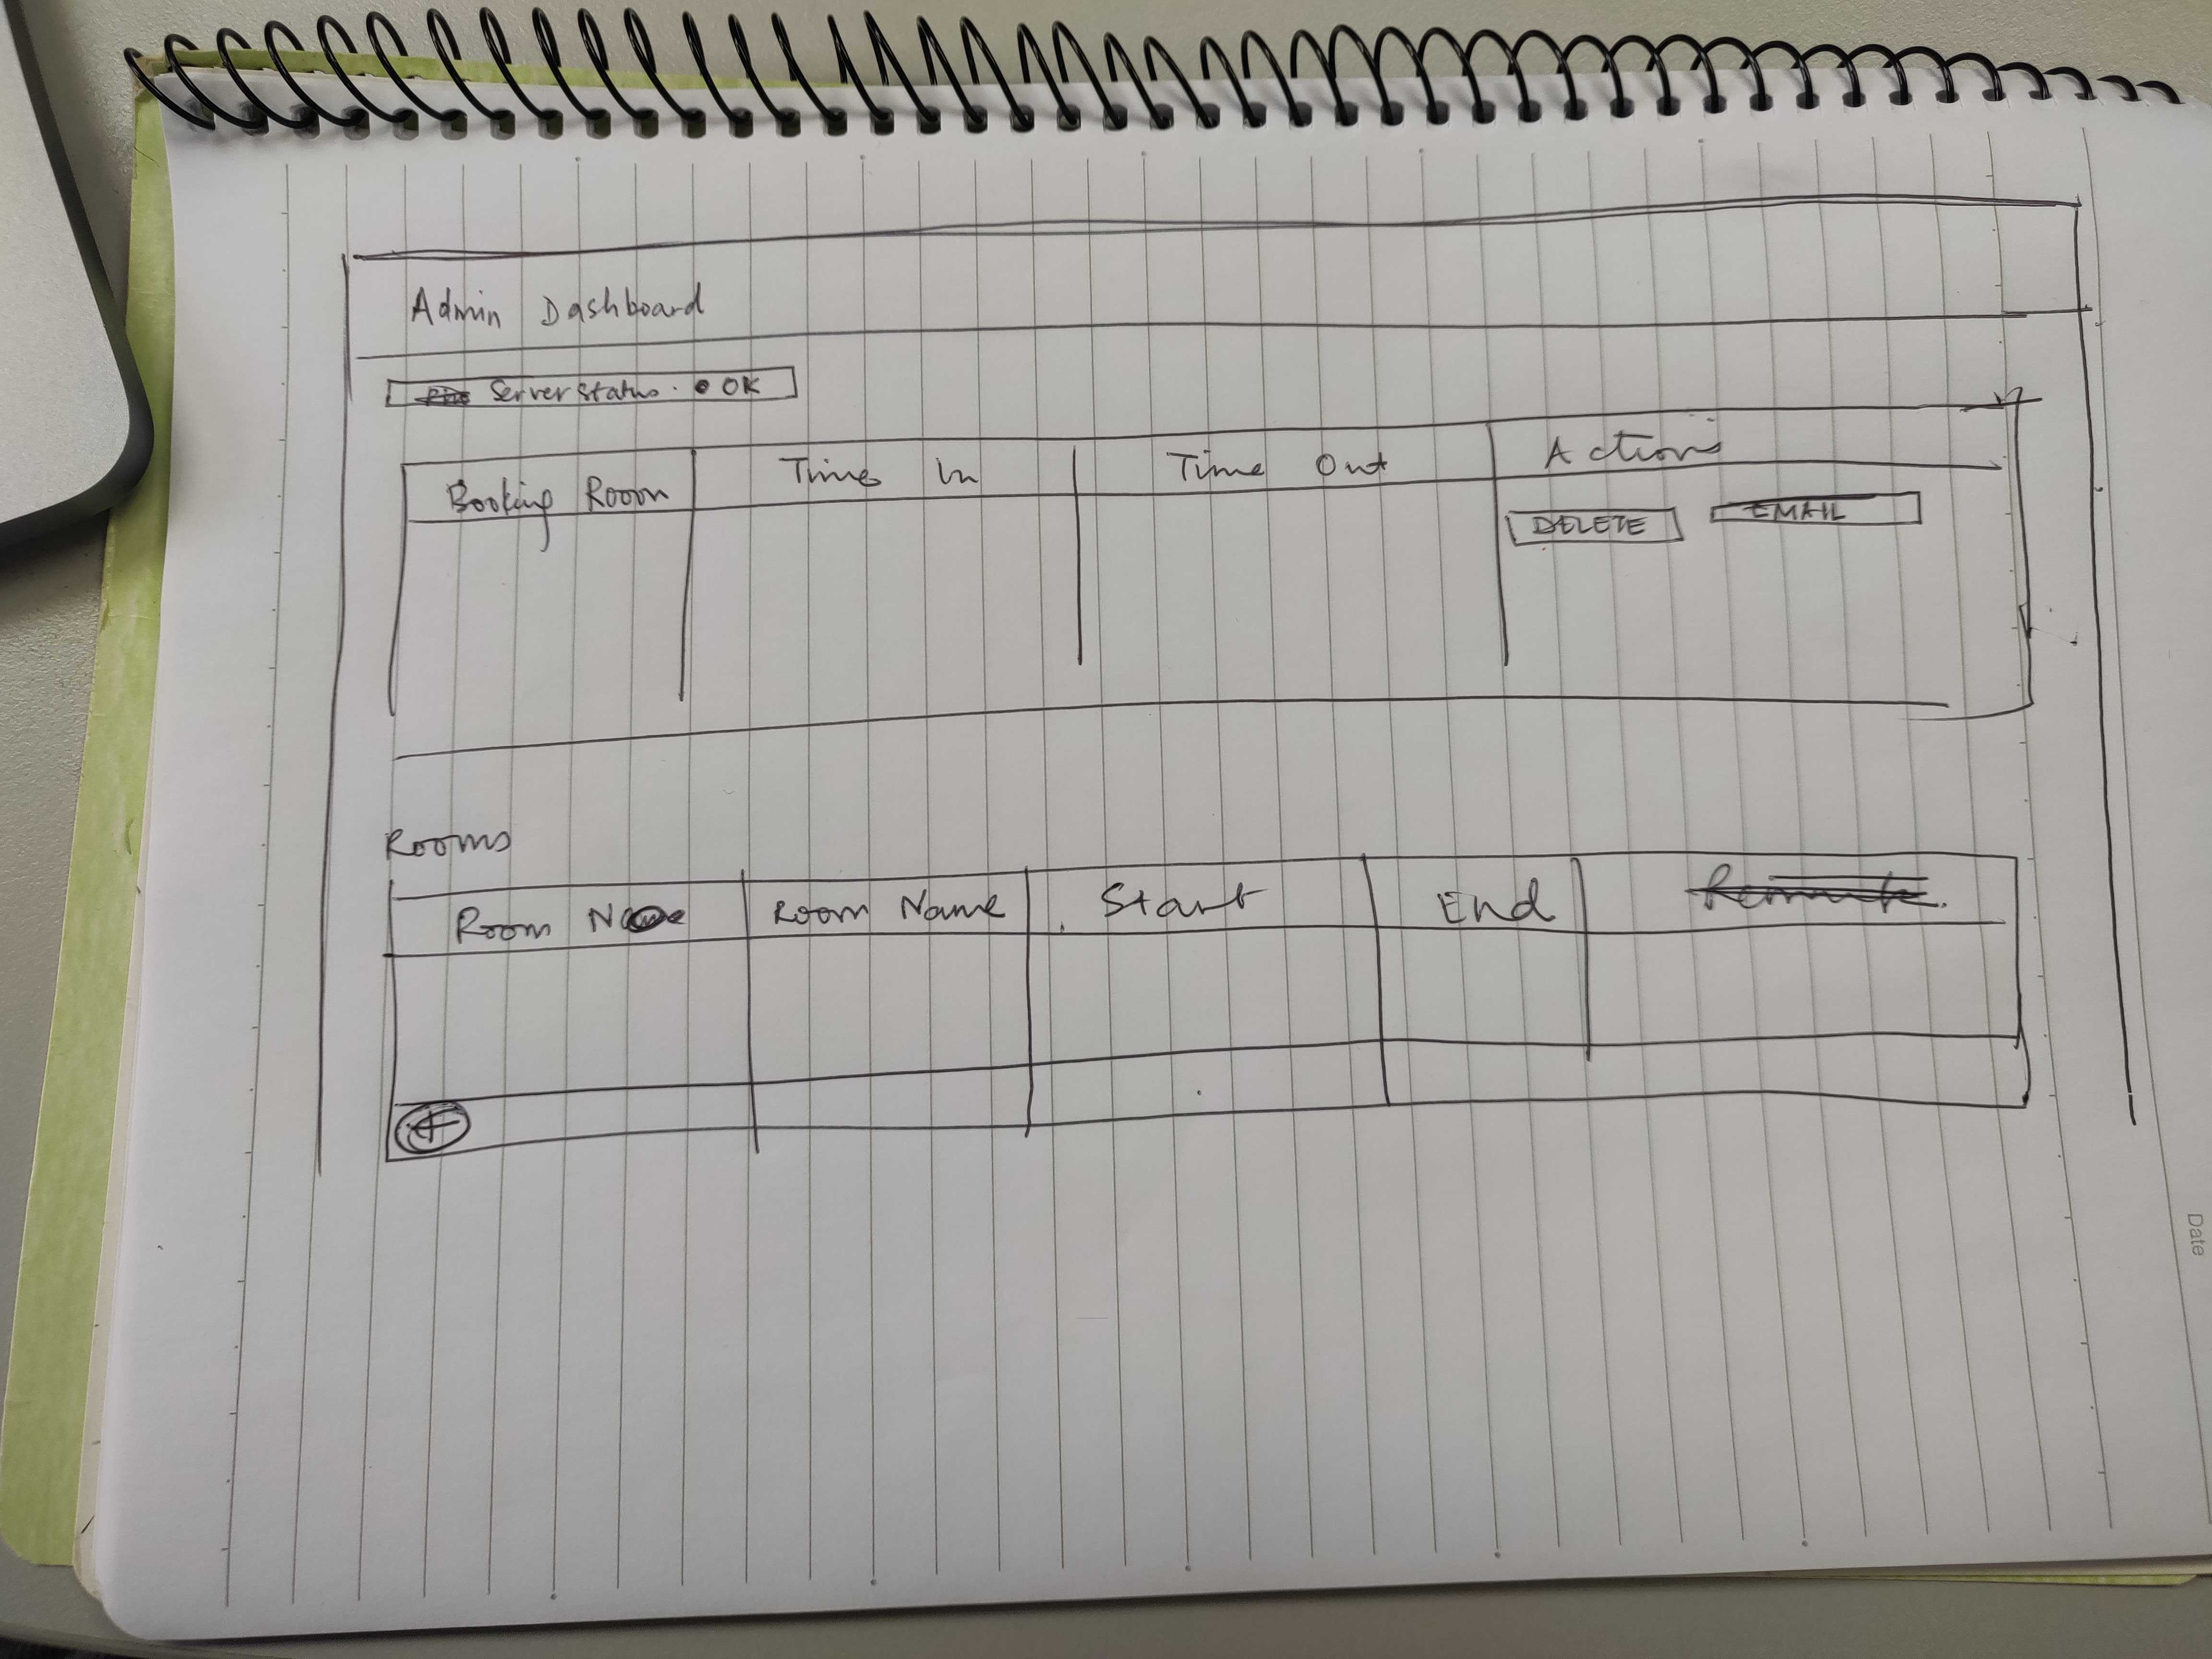 Admin Dashboard
Server Status. ● OK
Booking Room Time In Time Out Actions
DELETE EMAIL
Rooms
Room No Room Name Start End
+
Date